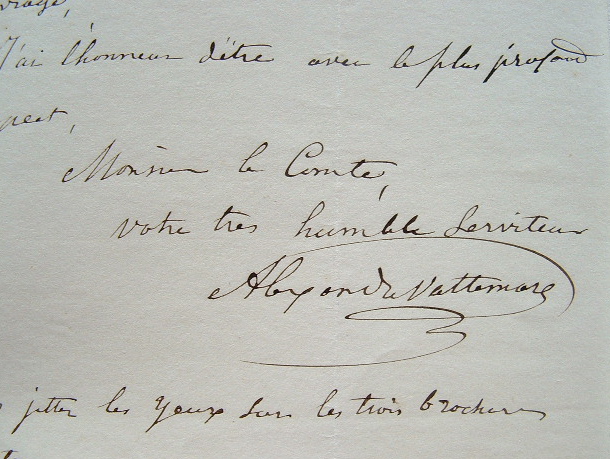 J'ai l'honneur d'être avec le plus profond
pect,
Monsieur le Comte,
votre tres humble Serviteur
Alexandre Vattemare
jetter les yeux sur les trois brochures